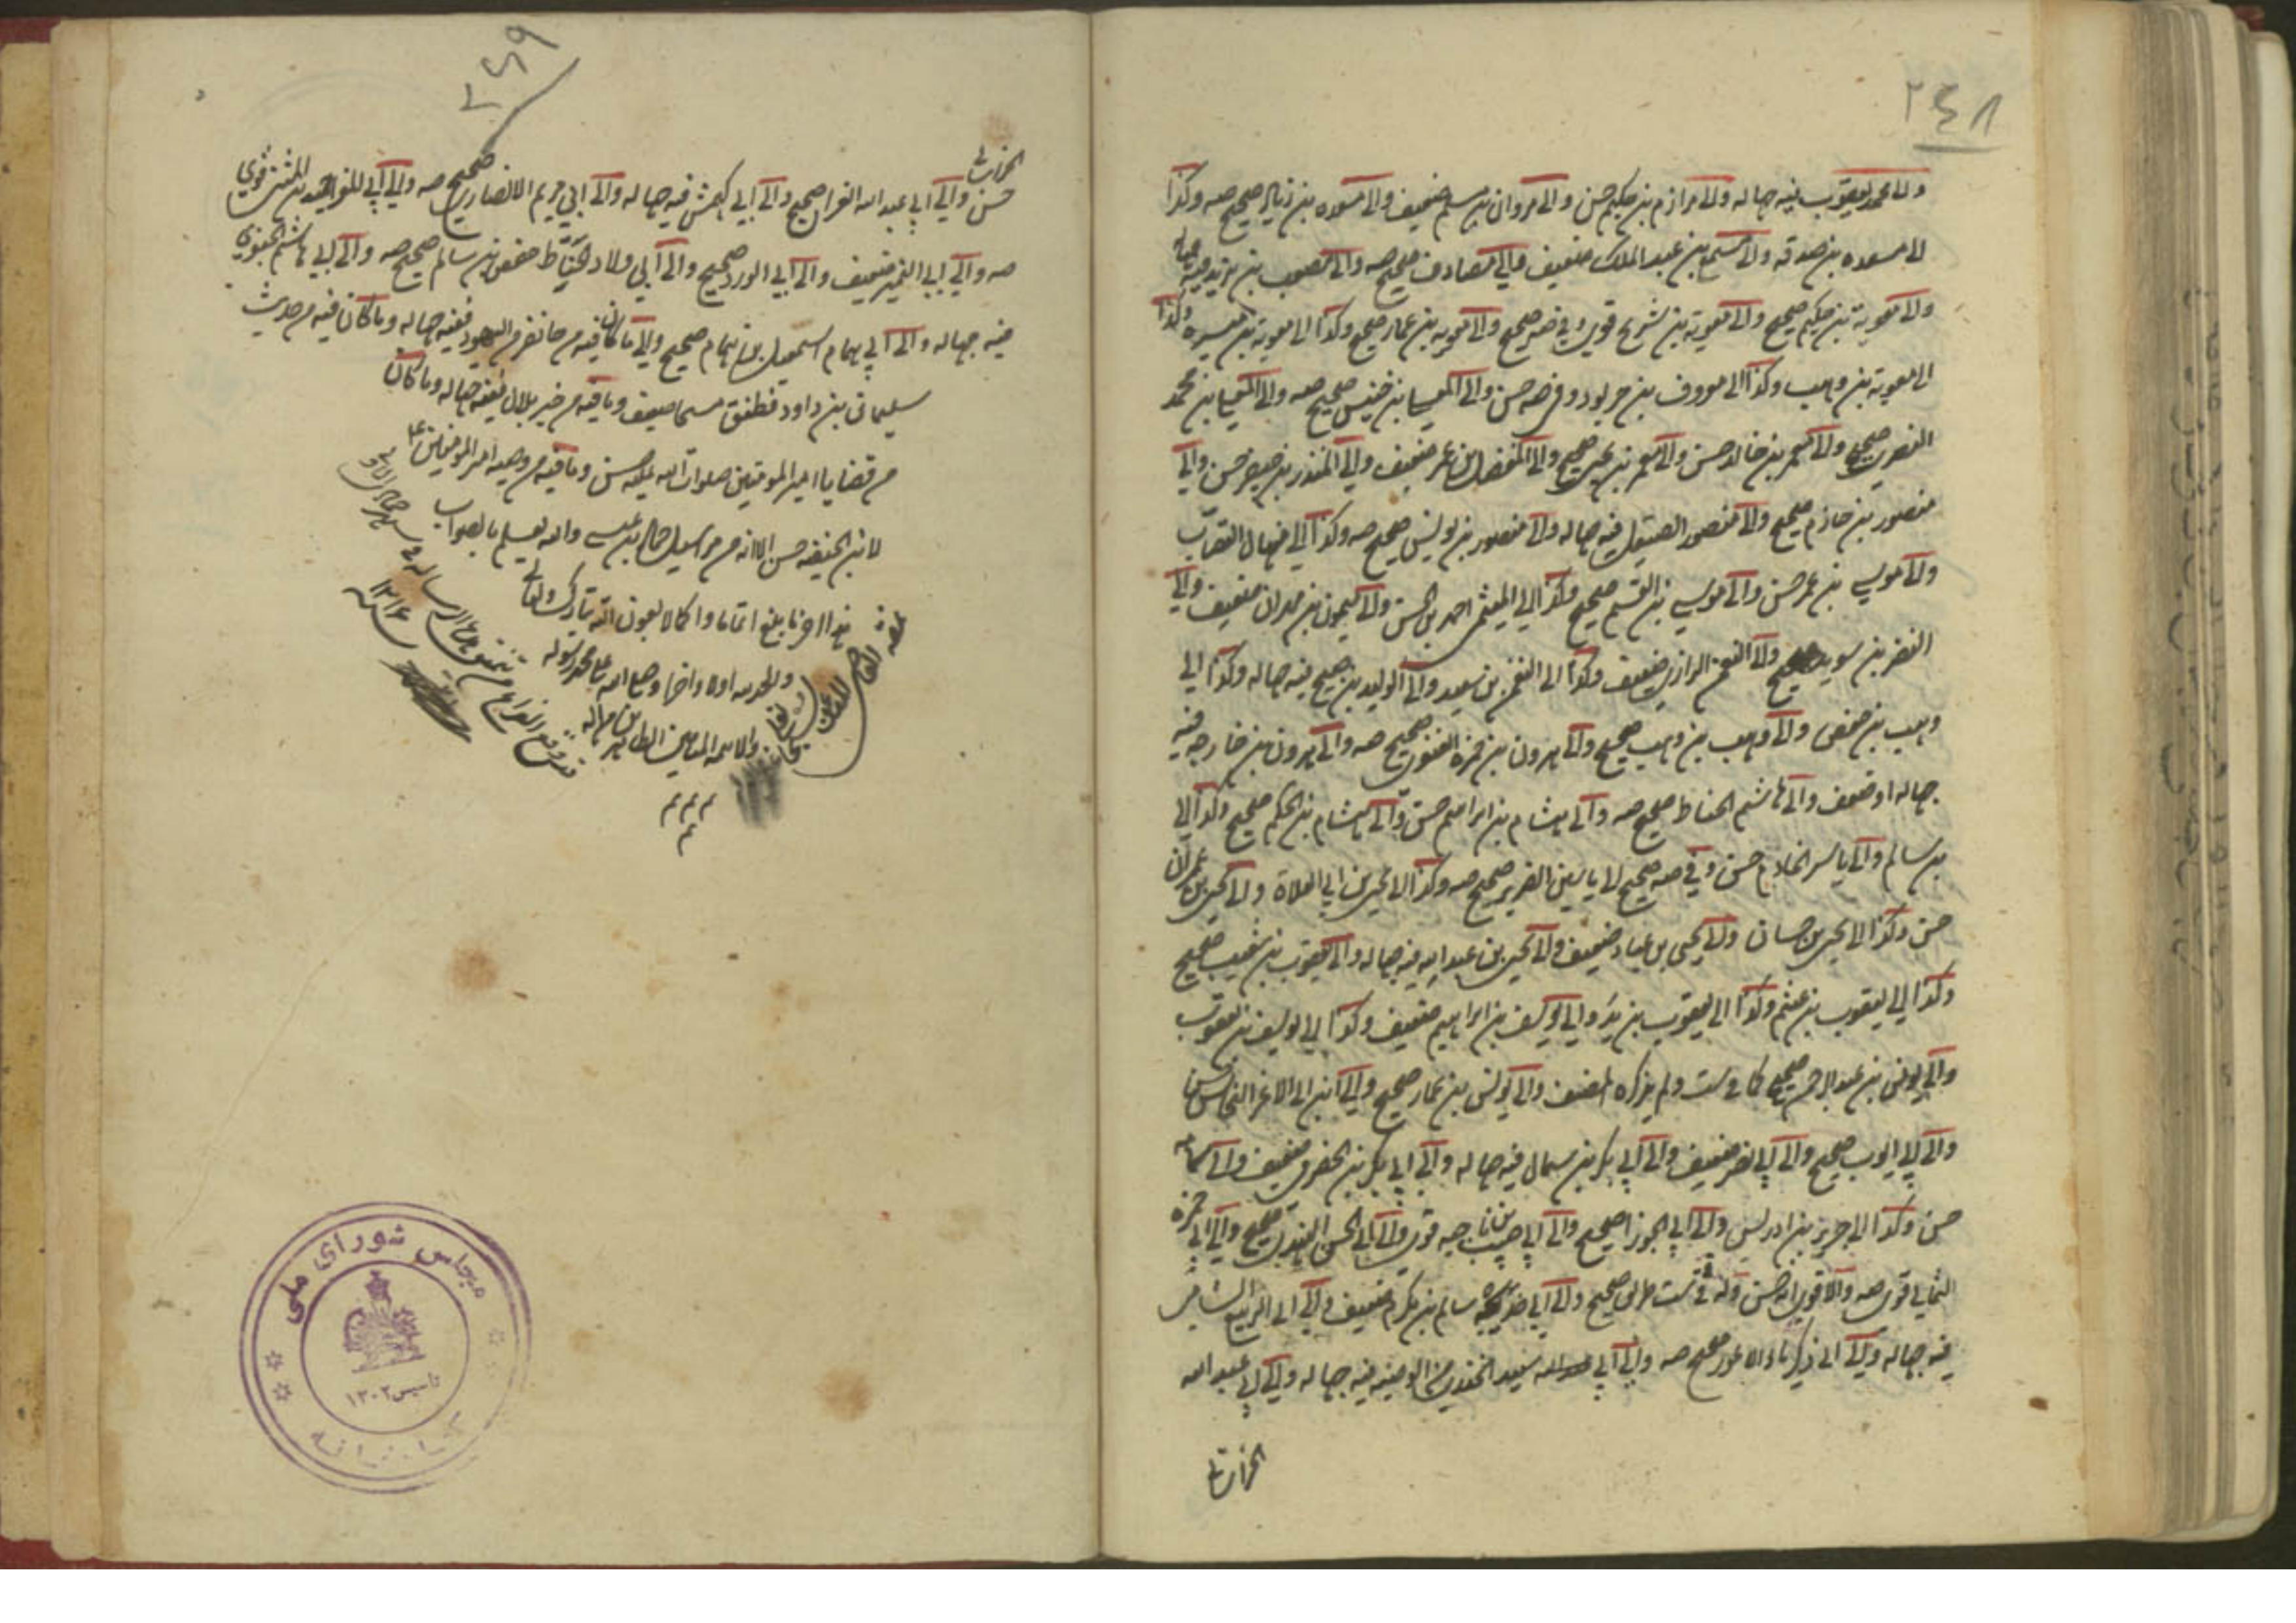 ٢٤٨
والى محمد بن يعقوب فيه جهالة والى مرازم بن حكيم حسن والى مروان بن مسلم ضعيف والى مسعدة بن زياد صحيح صه وكذا
الى مسعدة بن صدقه والى مسمع بن عبد الملك ضعيف والى مصادف صحيح صه والى مصعب بن يزيد فيه جهالة
والى معوية بن حكيم صحيح والى معوية بن شريح قوى وفى صه صحيح والى معوية بن عمار صحيح وكذا الى معوية بن ميسره وكذا
الى معوية بن وهب وكذا الى معروف بن خربوذ وفى صه حسن والى المعلى بن خنيس صحيح صه والى المعلى بن محمد
البصرى صحيح والى معمر بن خالد حسن والى معمر بن يحيى صحيح والى المفضل بن عمر ضعيف والى المنذر بن جيفر حسن والى
منصور بن حازم صحيح والى منصور الصيقل فيه جهالة والى منصور بن يونس صحيح صه وكذا الى منهال القصاب
والى موسى بن عمر حسن والى موسى بن القسم صحيح وكذا الى الميثمى احمد بن الحسن والى ميمون بن مهران ضعيف والى
النضر بن سويد صحيح والى النعمان الرازى ضعيف وكذا الى النعمان بن سعيد والى الوليد بن صبيح فيه جهالة وكذا الى
وهيب بن حفص والى وهب بن وهب صحيح والى هرون بن حمزه الغنوى صحيح صه والى هرون بن خارجه فيه
جهالة او ضعف والى هاشم الحناط صحيح صه والى هشام بن ابراهيم حسن والى هشام بن الحكم صحيح وكذا الى
بن سالم والى ياسر الخادم حسن وفى صه صحيح الى ياسين الضرير صحيح صه وكذا الى يحيى بن ابى العلاء والى يحيى بن ابى عمران
حسن وكذا الى يحيى بن حسان والى يحيى بن عباد ضعيف والى يحيى بن عبد الله فيه جهالة والى يعقوب بن شعيب صحيح
وكذا الى يعقوب بن عيثم وكذا الى يعقوب بن يزيد والى يوسف بن ابراهيم ضعيف وكذا الى يوسف بن يعقوب
والى يونس بن عبد الرحمن صحيح كما فى ست ولم يذكره المصنف والى يونس بن عمار صحيح والى ابن ابى الاغر النحاس حسن
والى ابى ايوب صحيح والى ابى بصير ضعيف والى ابى بكر بن سمال فيه جهالة والى ابى بكر الحضرمى ضعيف والى ثمامه
حسن وكذا الى جرير بن ادريس والى ابى الجوزا صحيح والى ابى حبيب ناجيه قوى والى ابى الحسن النهدى صحيح والى ابى حمزه
الثمالى قوى صه والاقوى انه حسن وله فى ست طريق صحيح والى ابى خديجه سالم بن مكرم ضعيف والى ابى الربيع الشامى
فيه جهالة والى ابى زكريا الاعور صحيح صه والى ابى سعيد الخدرى من الوصيه فيه جهالة والى ابى عبد الله
الخراسانى
٢٤٩
الخراسانى
حسن والى ابى عبد الله الفراء صحيح والى ابى كهمش فيه جهالة والى ابى مريم الانصارى صحيح صه والى ابى المغرا حميد بن المثنى قوى
صه والى ابى النمير ضعيف والى ابى الورد صحيح والى ابى ولاد الحناط حفص بن سالم صحيح صه والى ابى هاشم الجعفرى
فيه جهالة والى ابى همام اسمعيل بن همام صحيح والى ما كان فيه من جاء نفر من اليهود ففيه جهالة وما كان فيه من حديث
سليمان بن داود فطفق مسحا ضعيف وما فيه من خبر بلال ففيه جهالة وما كان
من قضايا امير المؤمنين صلوات الله عليه حسن وما فيه من وصيه امير المؤمنين ع
لابن الحنفيه حسن الا انه من مراسيل حماد بن عيسى والله يعلم بالصواب
هذا اخر ما بلغ اتماما واكمالا بعون الله تبارك وتعالى
والحمد لله اولا واخرا وصلى الله على محمد رسوله
والائمه الميامين الطاهرين من اله
قد وقع الفراغ من تنميق هذه الرساله فى شهر جمادى الاولى
سنه ١٣١٤
م م م
م
مجلس شوراى ملى
تاسيس ١٣٠٢
كتابخانه